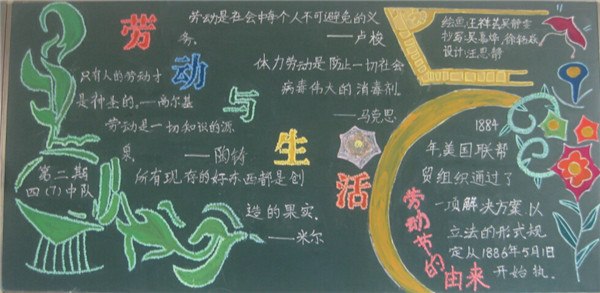 劳动与生活
劳动是社会中每个人不可避免的义
务。
——卢梭
体力劳动是防止一切社会
病毒伟大的消毒剂。
——马克思
只有人的劳动才
是神圣的。——高尔基
劳动是一切知识的源
泉。——陶铸
所有现存的好东西都是创
造的果实.
——米尔
第二期
四(7)中队
绘画:汪祥芸吴静雯
抄写:吴嘉烨、徐
设计:汪思静
1884
年美国联帮
贸组织通过了
一项解决方案以
立法的形式规
定从1886年5月1日
开始执.
劳动节的
由来